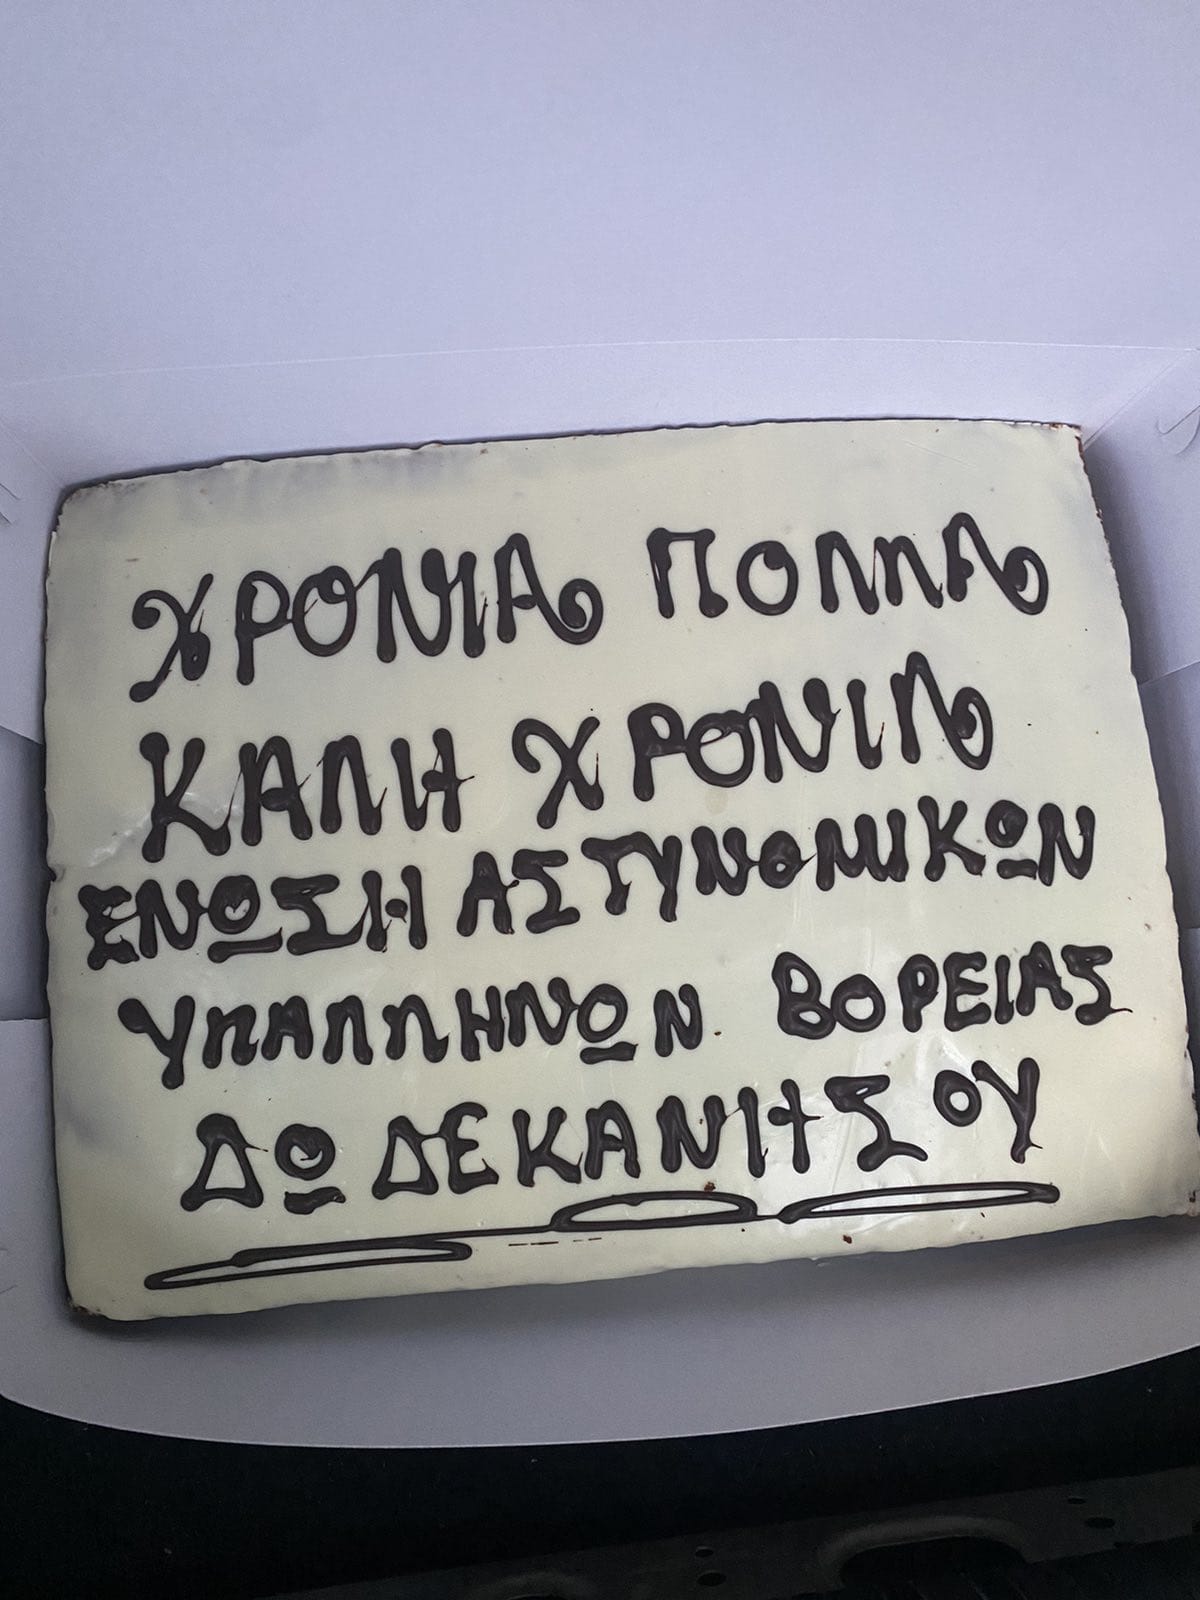 ΧΡΟΝΙΑ ΠΟΛΛΑ
ΚΑΛΗ ΧΡΟΝΙΑ
ΕΝΩΣΗ ΑΣΤΥΝΟΜΙΚΩΝ
ΥΠΑΛΛΗΛΩΝ ΒΟΡΕΙΑΣ
ΔΩΔΕΚΑΝΗΣΟΥ